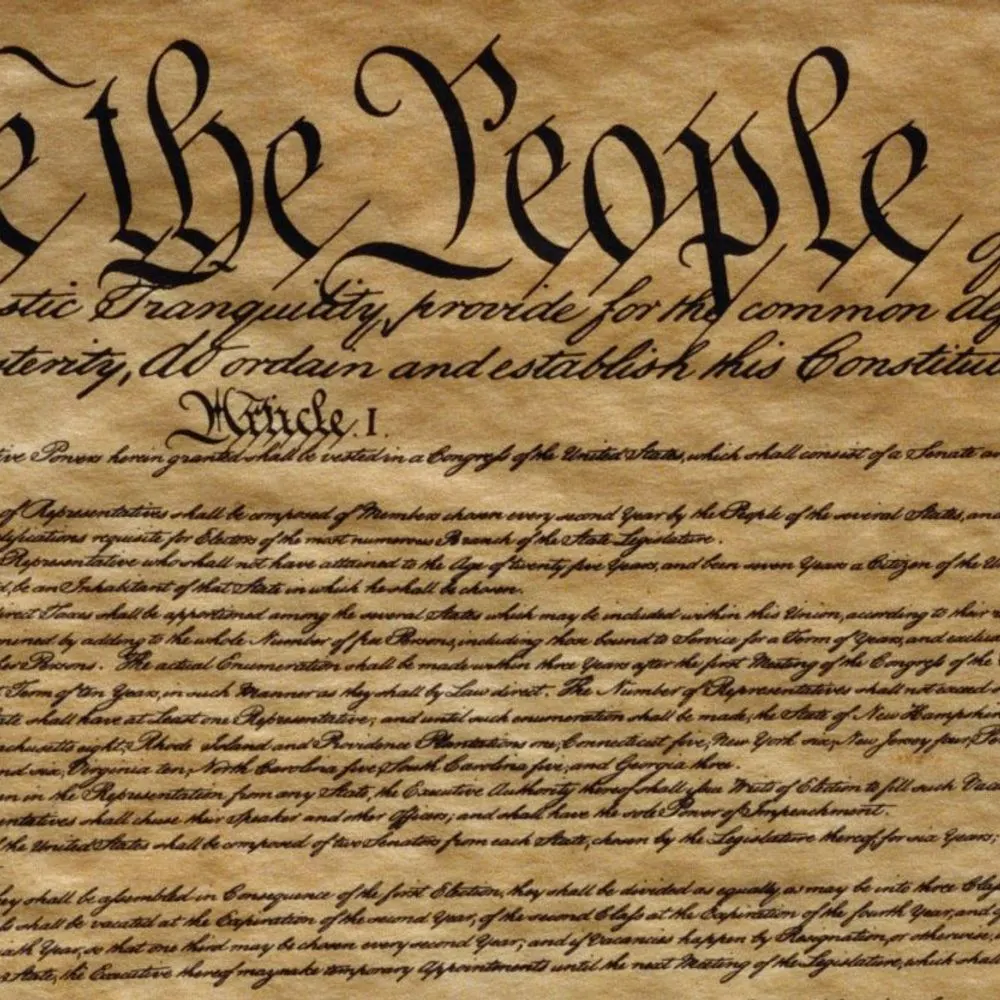 e the People of
stic Tranquility, provide for the common def
terity, do ordain and establish this Constitu
Article. I.
ive Powers herein granted shall be vested in a Congress of the United States, which shall consist of a Senate an
of Representatives shall be composed of Members chosen every second Year by the People of the several States, and
lifications requisite for Electors of the most numerous Branch of the State Legislature.
Representative who shall not have attained to the Age of twenty five Years, and been seven Years a Citizen of the U
d, be an Inhabitant of that State in which he shall be chosen.
irect Taxes shall be apportioned among the several States which may be included within this Union, according to their
mined by adding to the whole Number of free Persons, including those bound to Service for a Term of Years, and exclud
her Persons. The actual Enumeration shall be made within three Years after the first Meeting of the Congress of the
t Term of ten Years, in such Manner as they shall by Law direct. The Number of Representatives shall not exceed
ate shall have at Least one Representative; and until such enumeration shall be made, the State of New Hampshire
achusetts eight, Rhode Island and Providence Plantations one, Connecticut five, New York six, New Jersey four, Pen
nd six, Virginia ten, North Carolina five, South Carolina five, and Georgia three.
en in the Representation from any State, the Executive Authority thereof shall issue Writs of Election to fill such Vaca
entatives shall chuse their Speaker and other Officers; and shall have the sole Power of Impeachment.
f the United States shall be composed of two Senators from each State, chosen by the Legislature thereof, for six Years;
hey shall be assembled in Consequence of the first Election, they shall be divided as equally as may be into three Class
ls shall be vacated at the Expiration of the second Year, of the second Class at the Expiration of the fourth Year, and
ixth Year, so that one third may be chosen every second Year; and if Vacancies happen by Resignation, or otherwise,
State, the Executive thereof may make temporary Appointments until the next Meeting of the Legislature, which shall